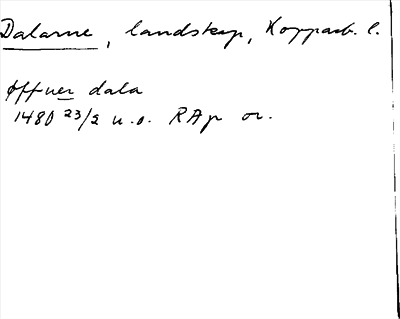 Dalarne, landskap, Kopparb. l.
Øffner dala
1480 23/2 u.o. RAp or.